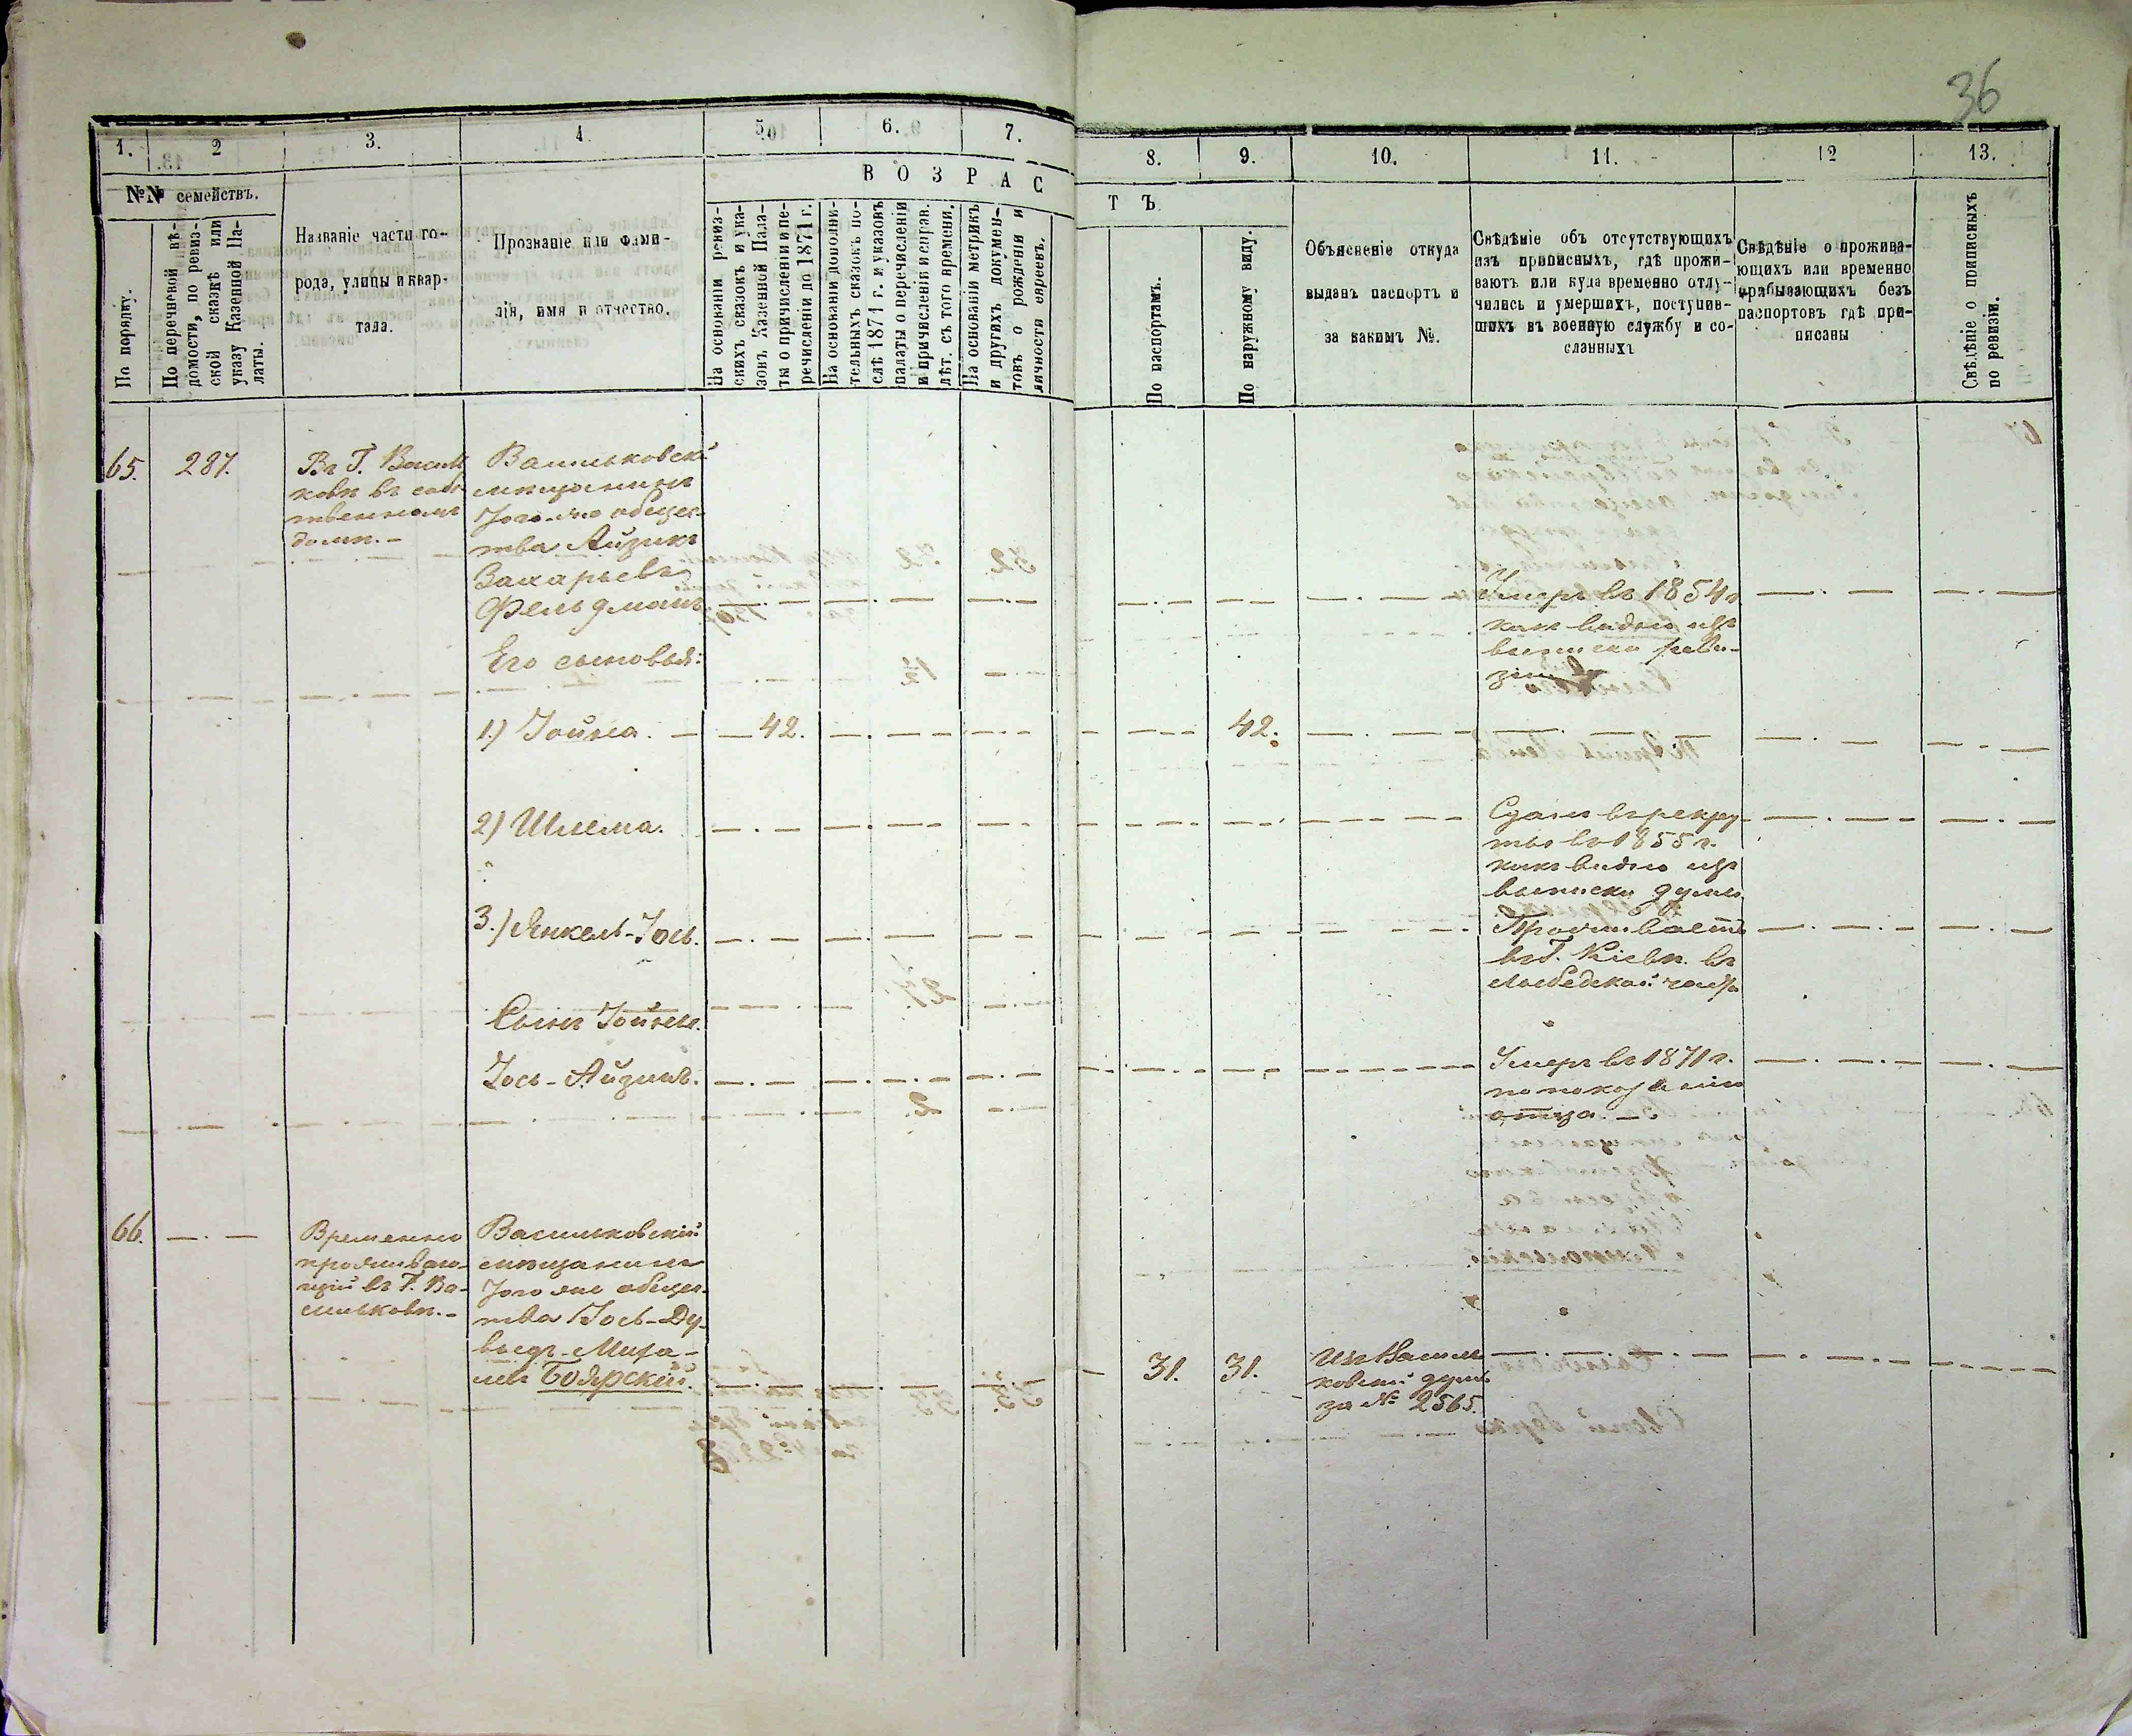 36
1.
2
3.
4.
5.
6.
7.
8.
9.
10.
11.
12
13.
№№ семействъ.
По порядку.
По перечневой вѣ-
домости, по ревиз-
ской сказкѣ или
указу Казенной Па-
латы.
Названіе части го-
рода, улицы и квар-
тала.
Прозваніе или фами-
лія, имя и отчество.
ВОЗРАС
ТЪ
На основаніи ревиз-
скихъ сказокъ и ука-
зовъ Казенной Пала-
ты о причисленіи и пе-
речисленіи до 1871 г.
На основаніи дополни-
тельныхъ сказокъ по-
слѣ 1871 г. и указовъ
палаты о перечисленіи
и причисленіи и исправ.
лѣт. съ того времени.
На основаніи метрикъ
и другихъ докумен-
товъ о рожденіи и
личности евреевъ.
По паспортамъ.
По наружному виду.
Объясненіе откуда
выданъ паспортъ и
за какимъ №.
Свѣдѣніе объ отсутствующихъ
изъ приписныхъ, гдѣ прожи-
ваютъ или куда временно отлу-
чились и умершихъ, поступив-
шихъ въ военную службу и со-
сланныхъ
Свѣдѣніе о прожива-
ющихъ или временно
прибывающихъ безъ
паспортовъ гдѣ при-
писаны
Свѣдѣніе о приписныхъ
по ревизіи.
65.
287.
Въ Г. Василь
ковѣ въ собс
твенномъ
домѣ. -
Васильковскій
мѣщанинъ
Того-же общес
тва Айзикъ
Захарьевъ
Фельдманъ
Умеръ въ 1854 г.
какъ видно изъ
выписки реви-
зіи
Его сыновья:
1.) Іойна. - 42. 42.
2) Шлема.
Сданъ въ рекру-
ты въ 1855 г.
какъ видно изъ
выписки думы
3.) Янкель-Іось.
Проживаетъ
въ Г. Кіевѣ. въ
Лыбедской части
Сынъ Іойны.
Іось-Айзикъ.
Умеръ въ 1871 г.
по показанію
отца. -
66.
Временно
проживаю-
щій въ Г. Ва-
сильковѣ. -
Васильковскій
мѣщанинъ
Того же общес-
тва Іось-Ду-
выдъ-Миха-
левъ Боярскій.
31. 31.
Изъ Василь
ковской думы
за № 2565.